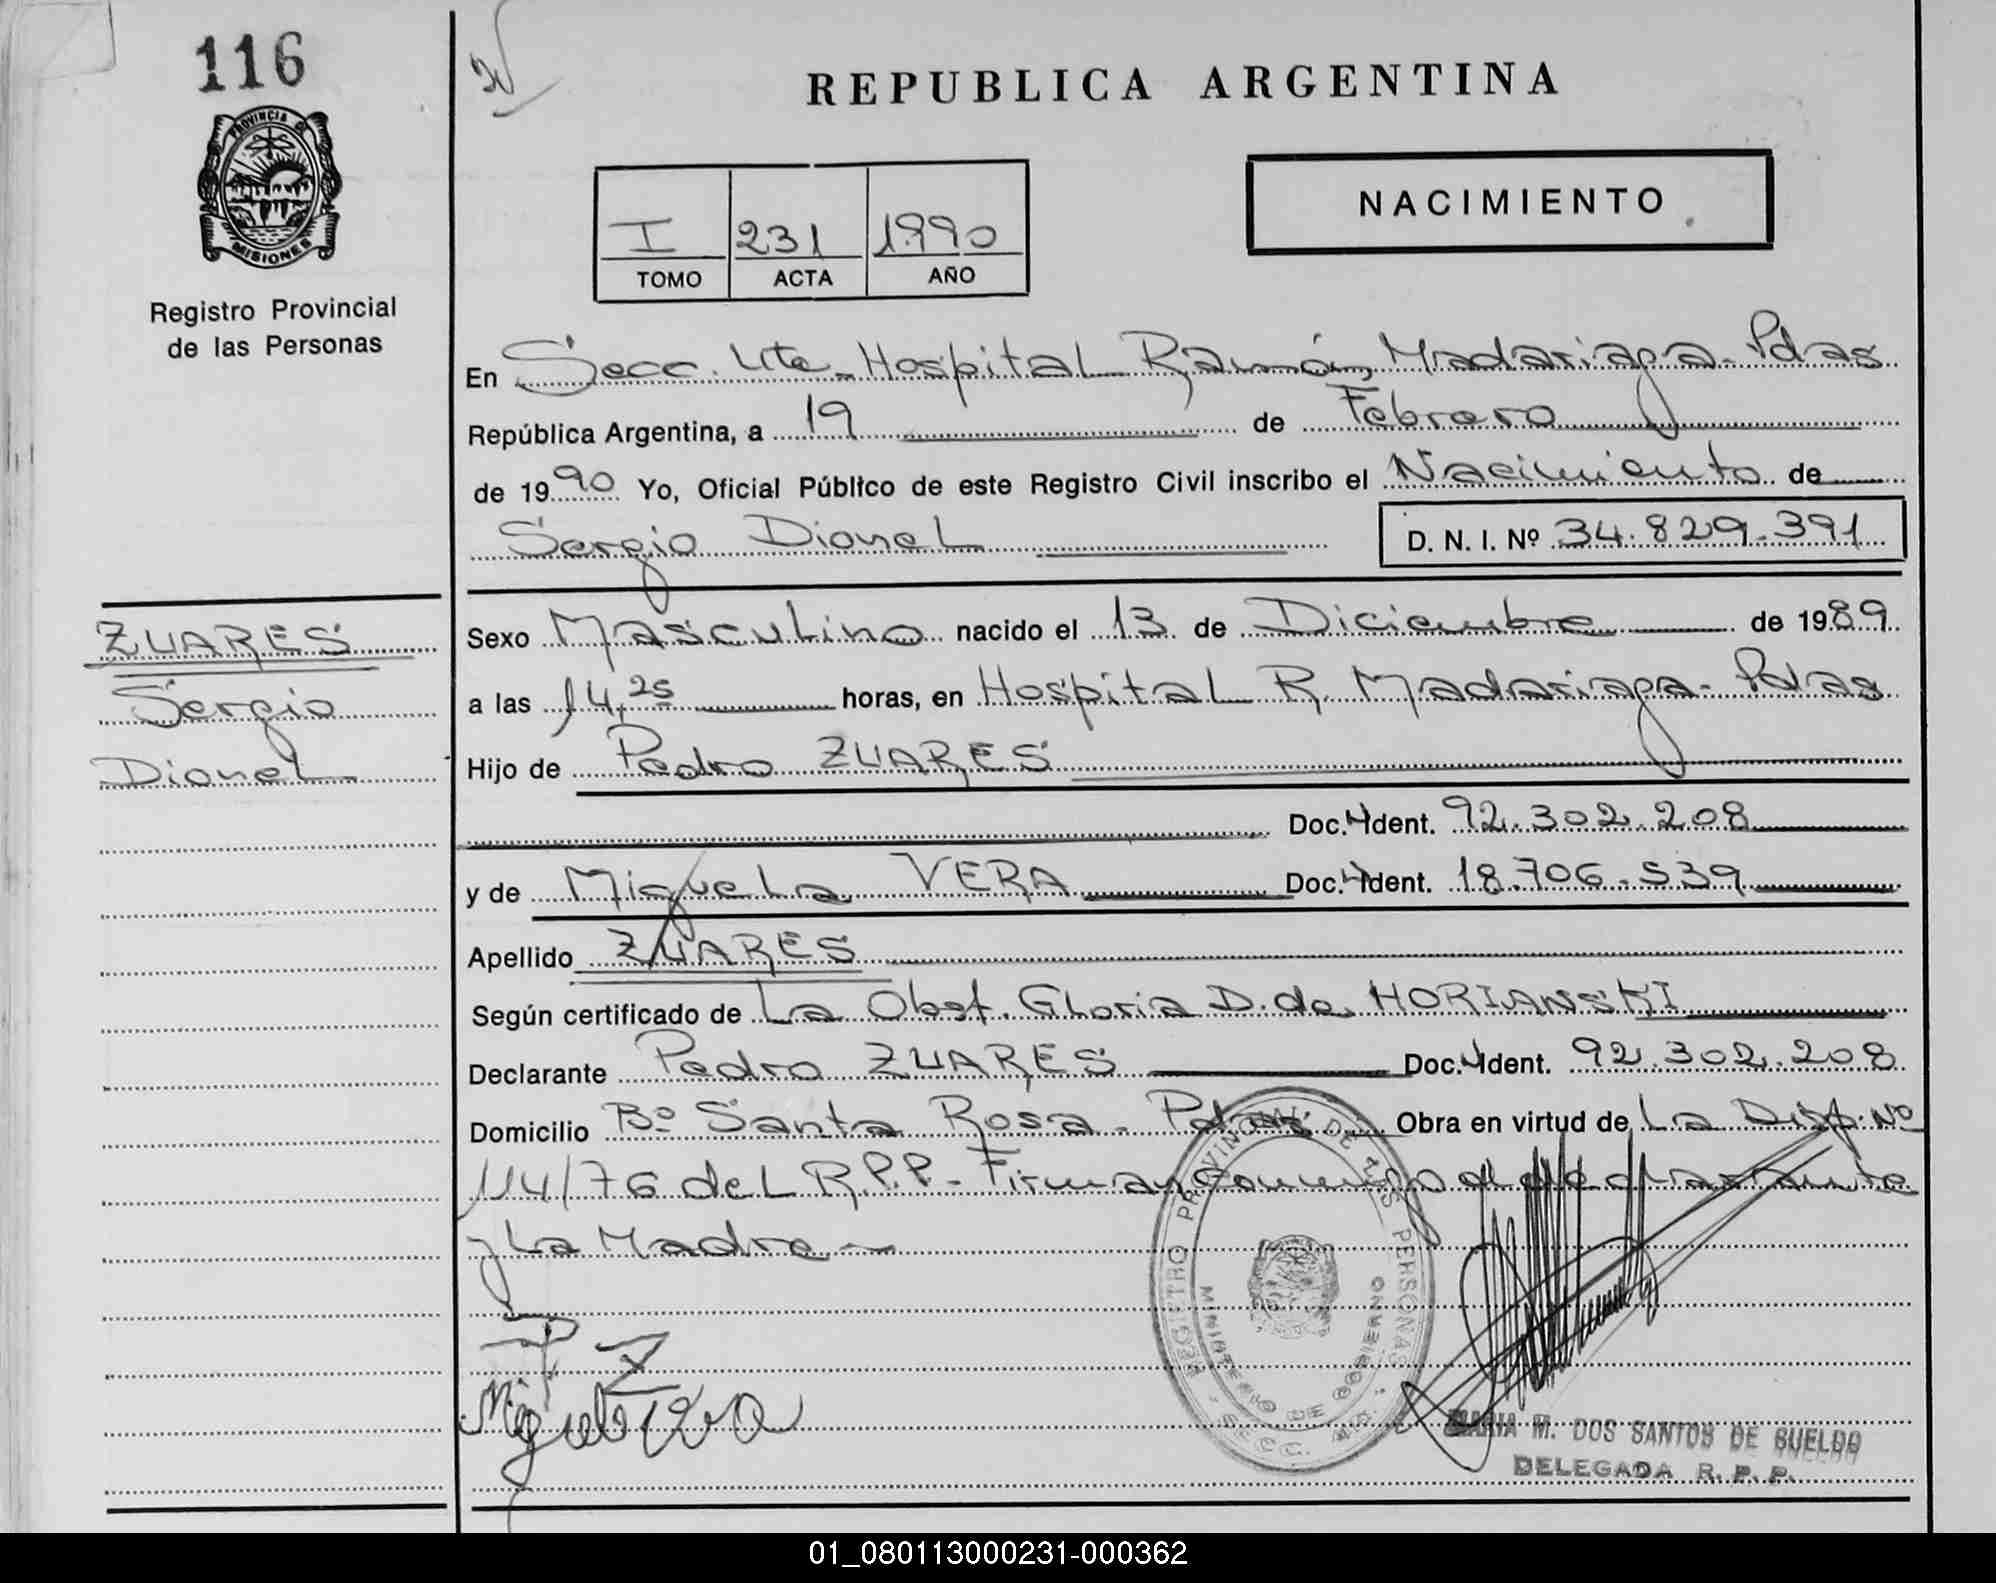 116
REPUBLICA ARGENTINA
PROVINCIA DE
MISIONES
Registro Provincial
de las Personas
NACIMIENTO
I 231 1990
TOMO ACTA AÑO
En Secc. 4ta. Hospital Ramón Madariaga - Pdas
República Argentina, a 19 de Febrero
de 1990 Yo, Oficial Público de este Registro Civil inscribo el Nacimiento de
Sergio Dionel D. N. I. Nº 34.829.391
ZUARES
Sergio
Dionel
Sexo Masculino nacido el 13 de Diciembre de 1989
a las 14,25 horas, en Hospital R. Madariaga - Pdas
Hijo de Pedro ZUARES
Doc. Ident. 92.302.208
y de Miguela VERA Doc. Ident. 18.706.539
Apellido ZUARES
Según certificado de La Obst. Gloria D. de HORIANSKI
Declarante Pedro ZUARES Doc. Ident. 92.302.208
Domicilio Bº Santa Rosa - Pdas Obra en virtud de La Disp. Nº
114/76 del R.P.P. - Firman conmigo el declarante
y La Madre
REGISTRO PROVINCIAL DE LAS PERSONAS
MINISTERIO DE GOBIERNO
P Z
MARIA M. DOS SANTOS DE SUELDO
DELEGADA R. P. P.
01_080113000231-000362